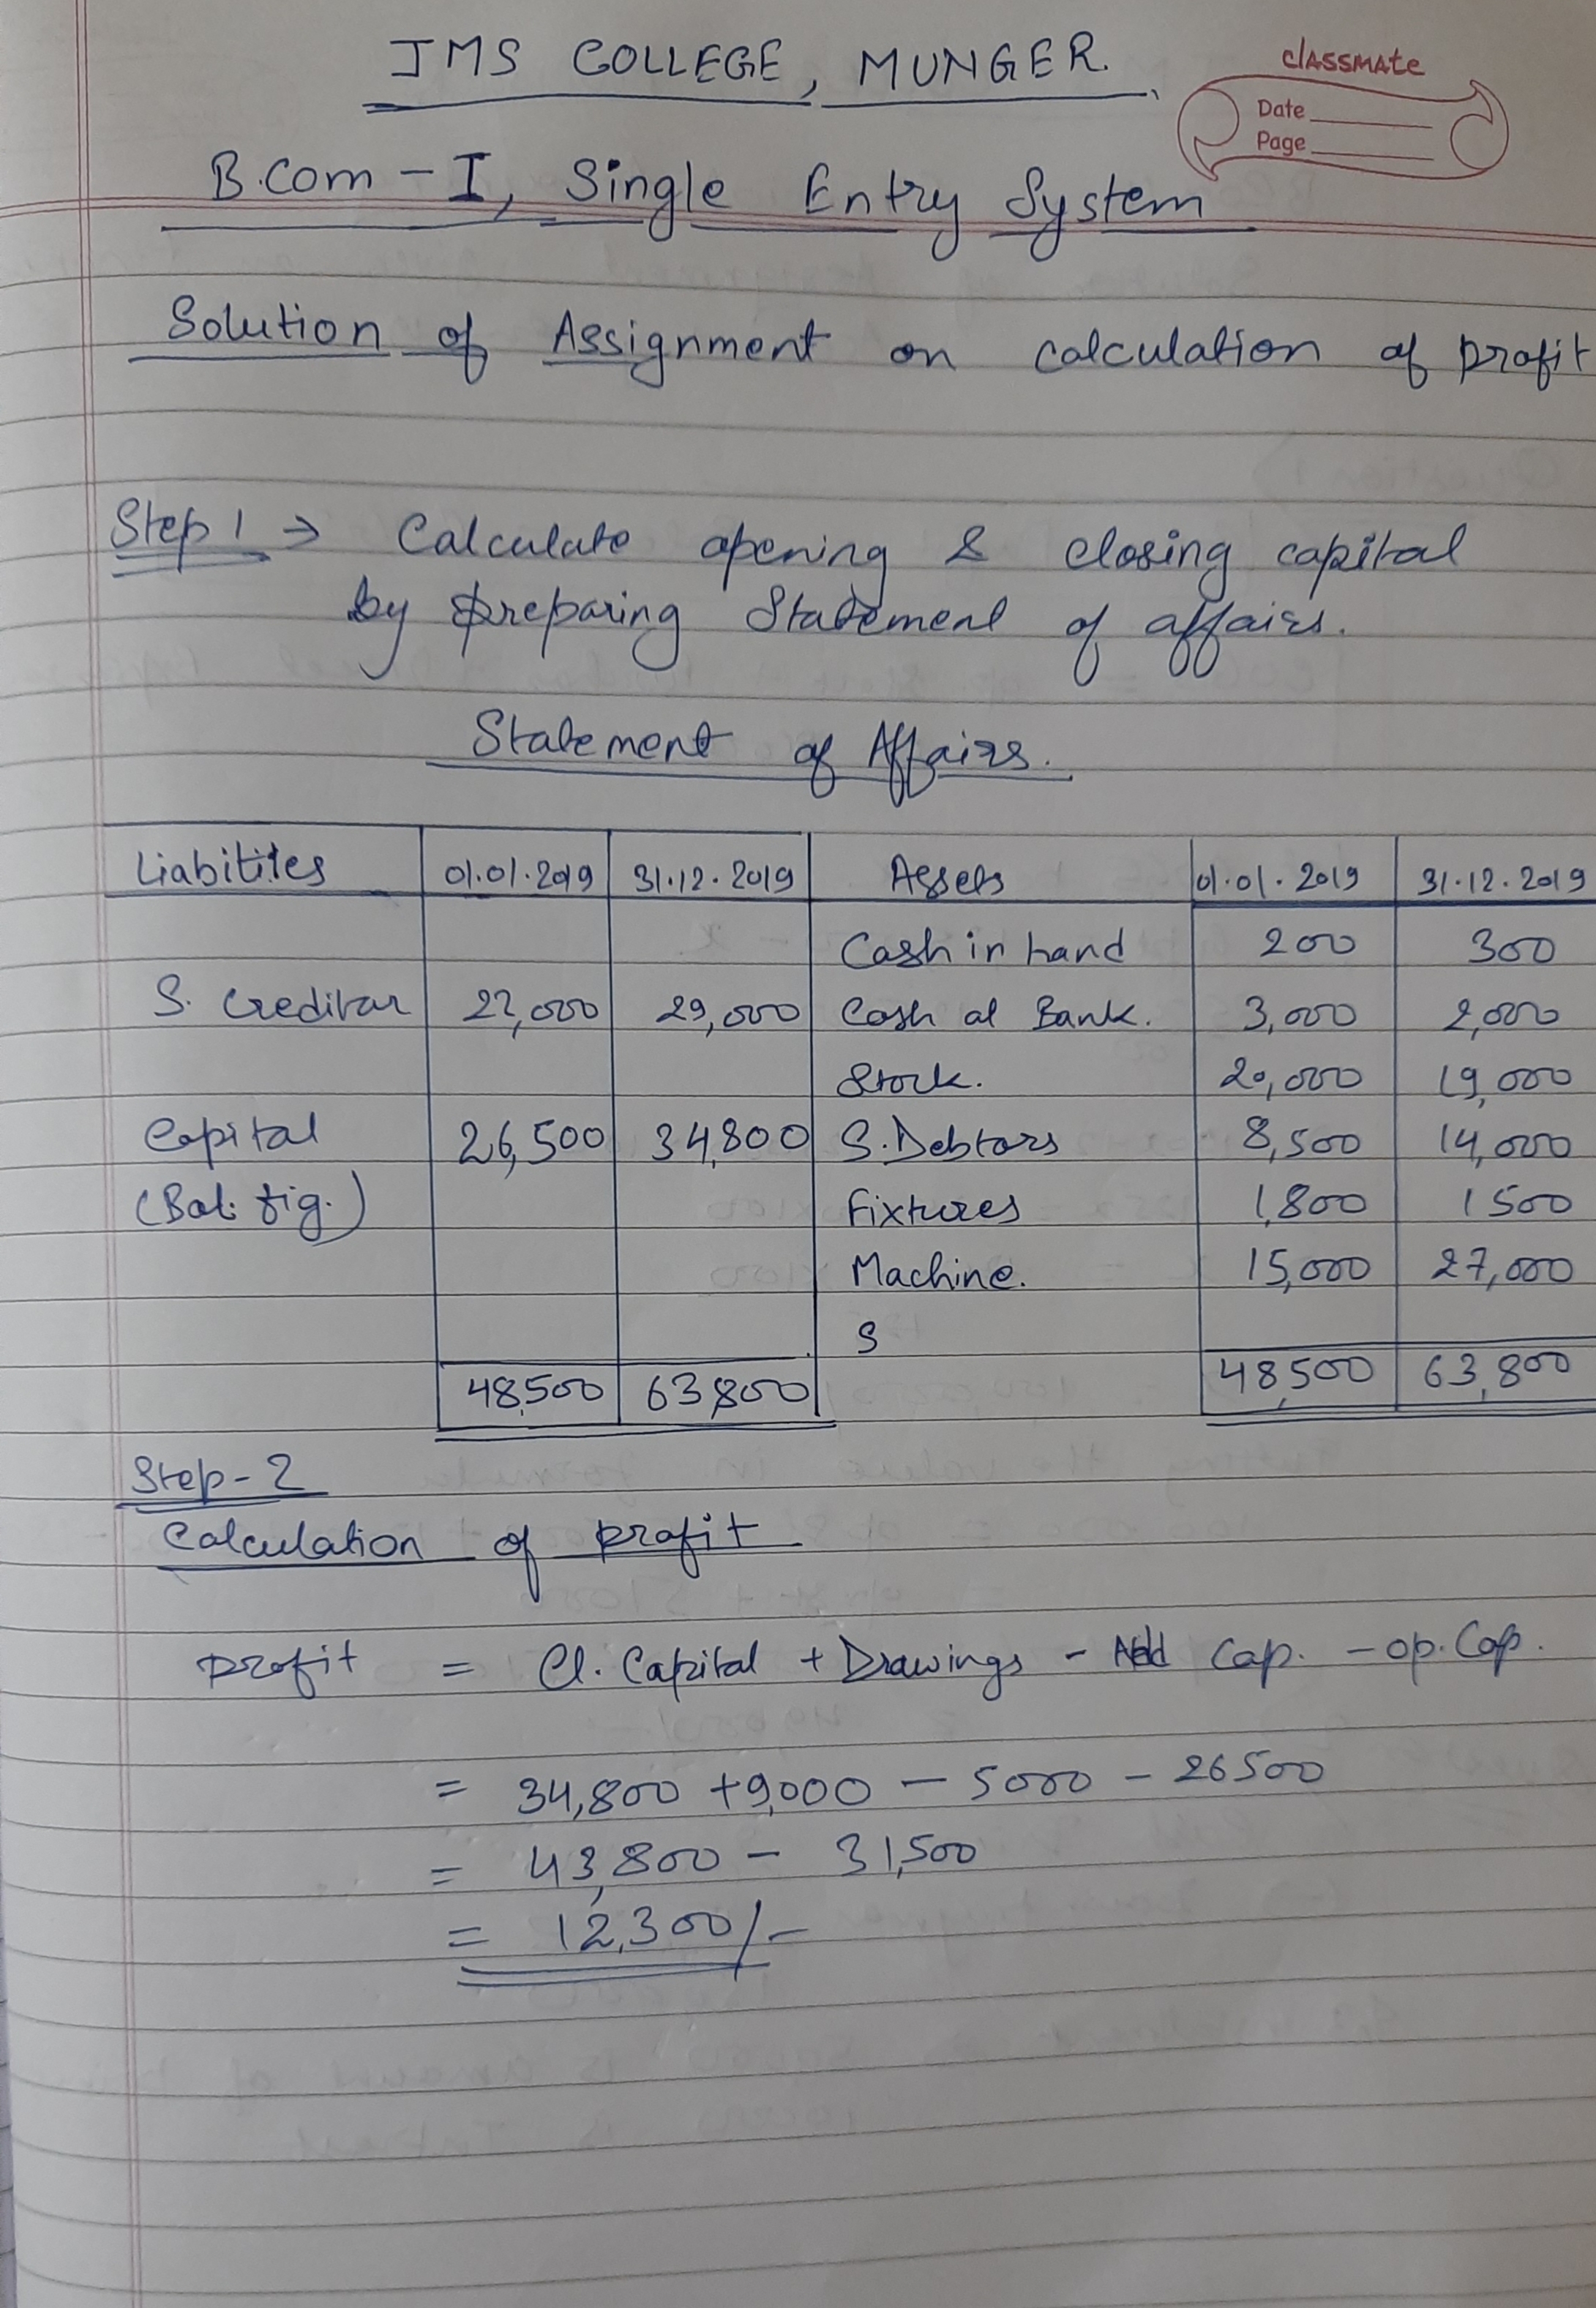 JMS COLLEGE, MUNGER.
classmate
Date
Page
B.Com - I, Single Entry System
Solution of Assignment on calculation of profit
Step 1 → Calculate opening & closing capital
by preparing Statement of affairs.
Statement of Affairs.
Liabitites 01.01.2019 31.12.2019 Assets 01.01.2019 31.12.2019
Cash in hand 200 300
S. Creditor 22,000 29,000 Cash at Bank. 3,000 2,000
Stock. 20,000 19,000
Capital 26,500 34,800 S. Debtors 8,500 14,000
(Bal. fig.) Fixtures 1,800 1500
Machine. 15,000 27,000
S
48,500 63,800 48,500 63,800
Step-2
Calculation of profit
Profit = Cl. Capital + Drawings - Add Cap. - op. Cap.
= 34,800 + 9,000 - 5000 - 26500
= 43,800 - 31,500
= 12,300/-